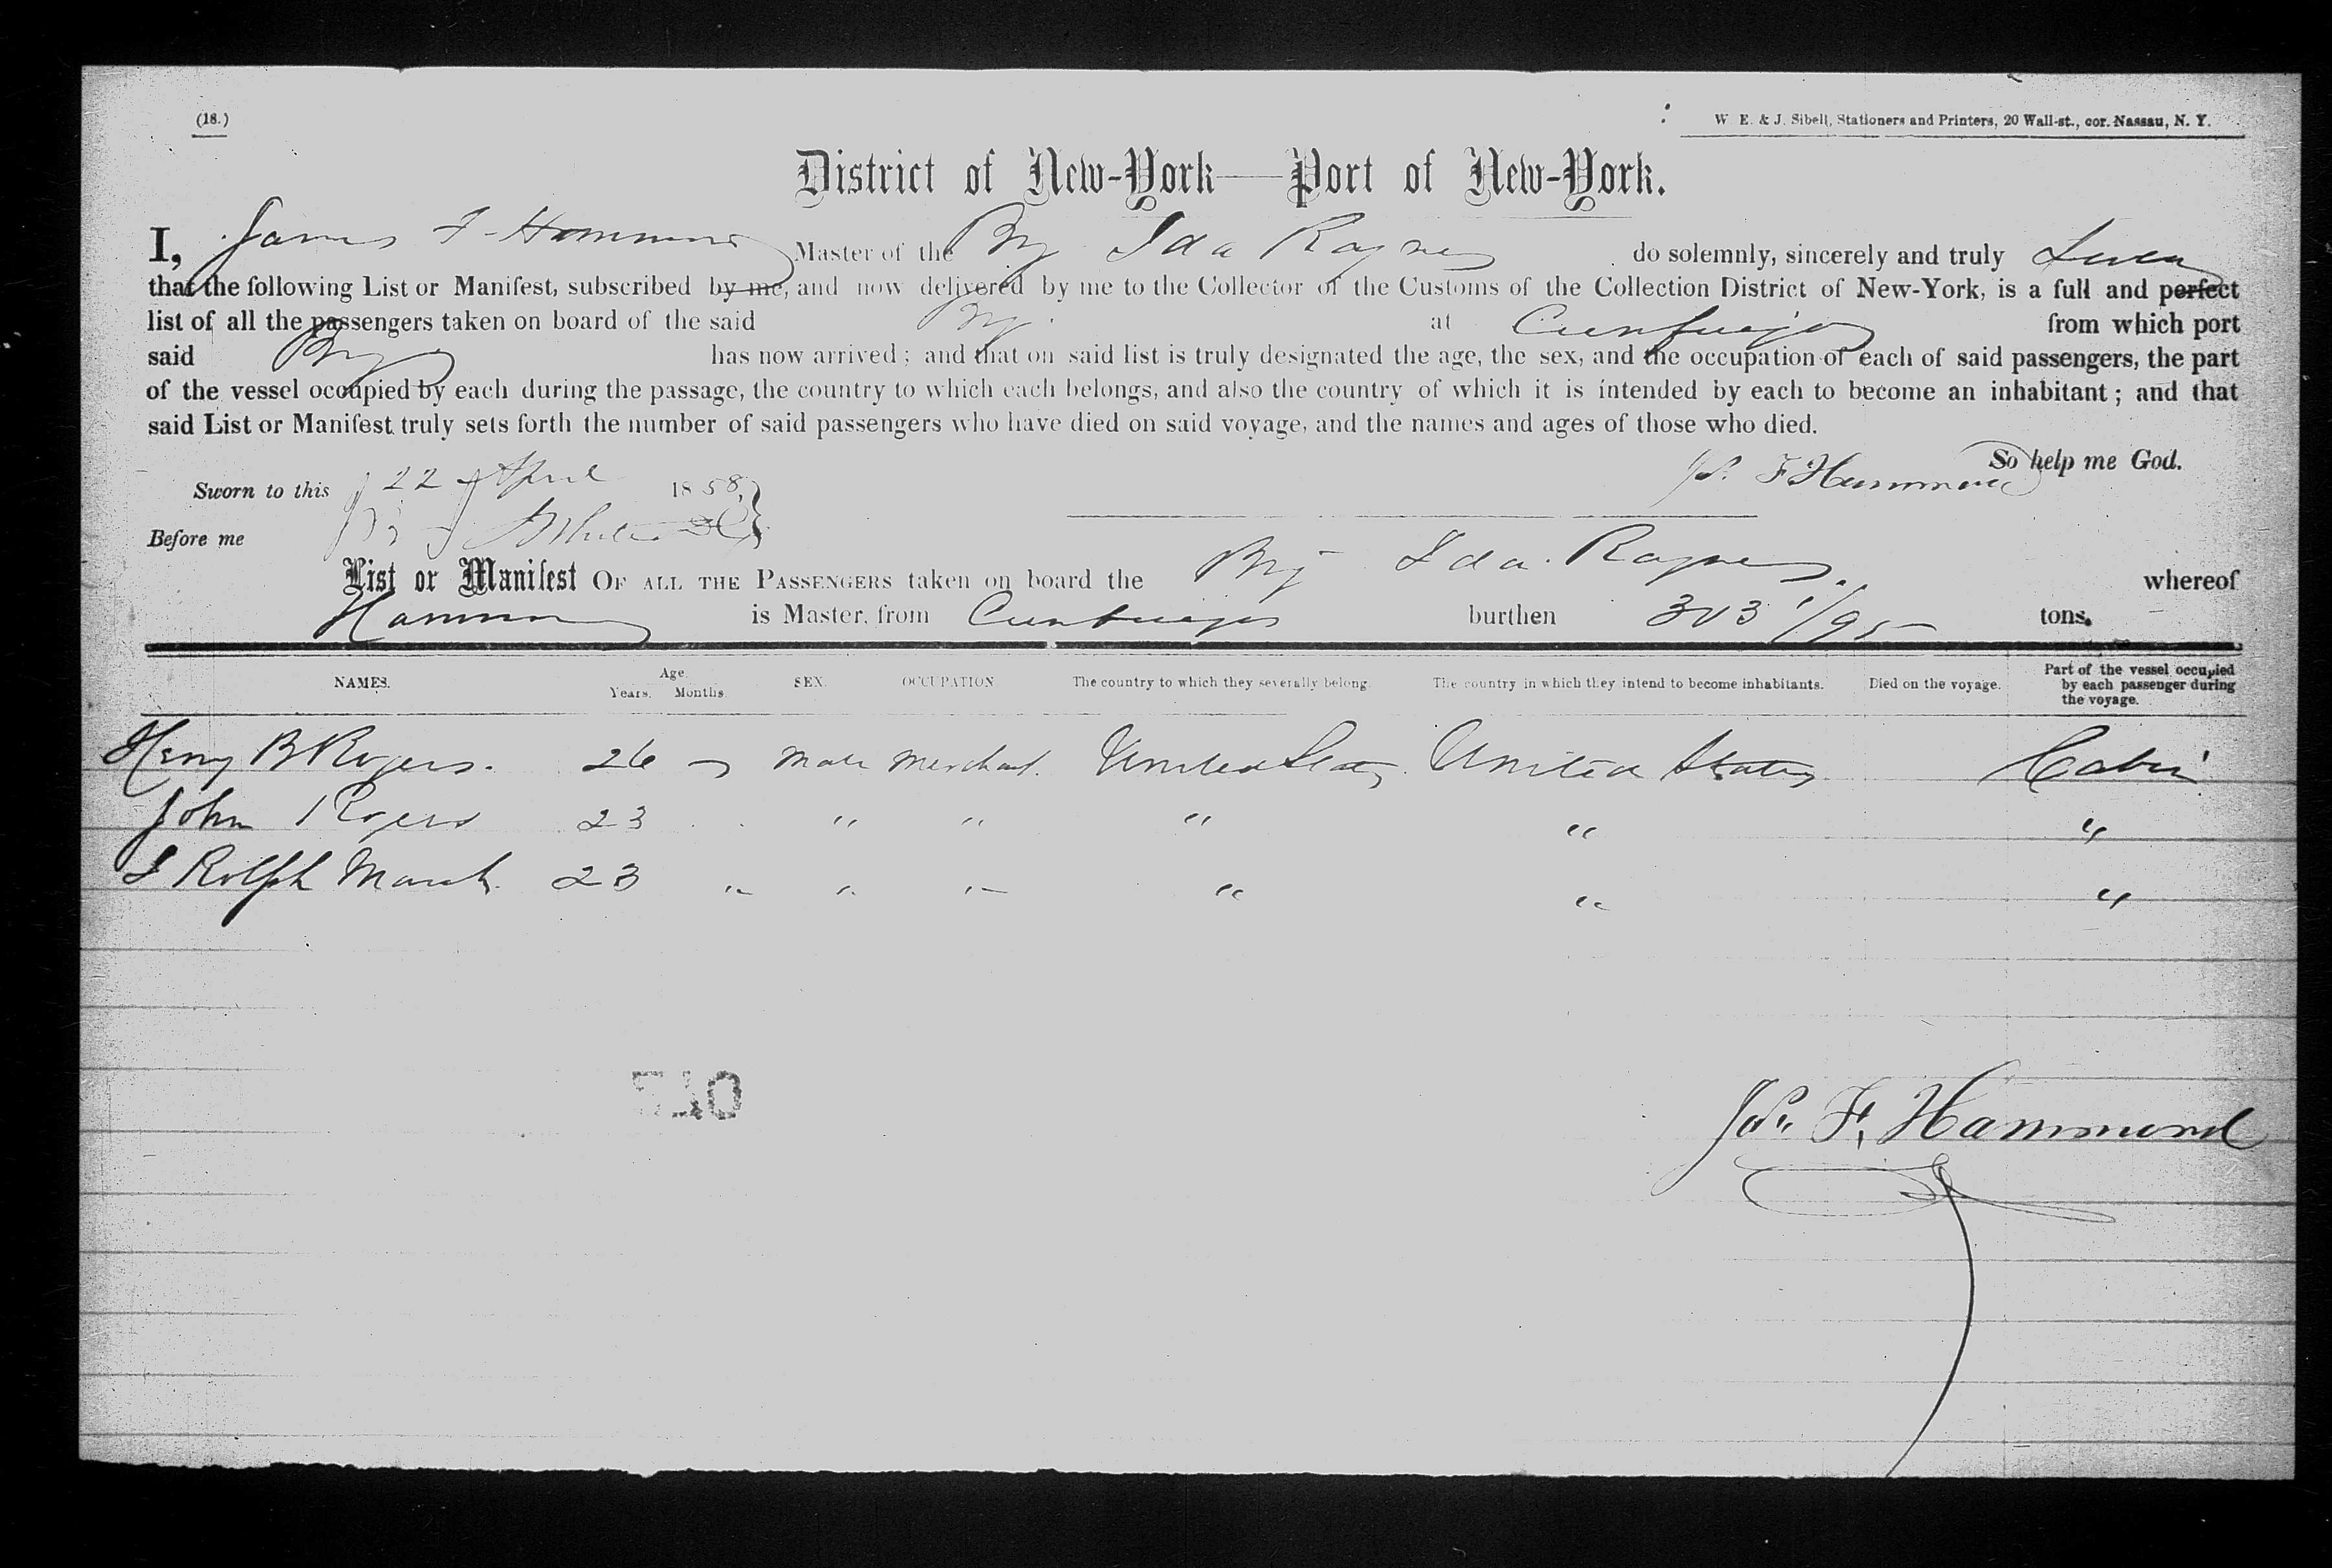 (18.)
W. E. & J. Sibell, Stationers and Printers, 20 Wall-st., cor. Nassau, N. Y.
District of New-York—Port of New-York.
I, James F Hammond Master of the Brig Ida Raynes do solemnly, sincerely and truly Swear
that the following List or Manifest, subscribed by me, and now delivered by me to the Collector of the Customs of the Collection District of New-York, is a full and perfect
list of all the passengers taken on board of the said Brig at Cienfuegos from which port
said Brig has now arrived; and that on said list is truly designated the age, the sex, and the occupation of each of said passengers, the part
of the vessel occupied by each during the passage, the country to which each belongs, and also the country of which it is intended by each to become an inhabitant; and that
said List or Manifest truly sets forth the number of said passengers who have died on said voyage, and the names and ages of those who died.
So help me God.
Sworn to this 22 April 1858, Js. F Hammond
Before me
List or Manifest OF ALL THE PASSENGERS taken on board the Brig Ida Raynes. whereof
Hammond is Master, from Cienfuegos burthen 303 1/95 tons.
NAMES. Age. Years. Months. SEX. OCCUPATION The country to which they severally belong. The country in which they intend to become inhabitants. Died on the voyage. Part of the vessel occupied by each passenger during the voyage.
Henry B Rogers. 26 male Merchant. United States. United States Cabin
John Rogers 23 " " " " "
Rolph Marsh. 23 " " " " " "
510
Js. F. Hammond